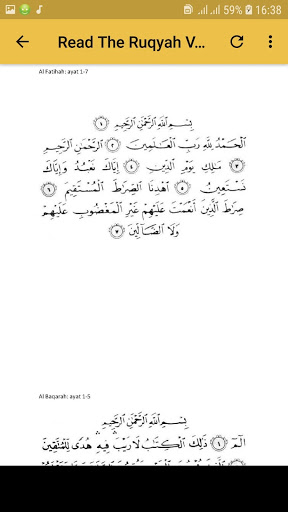 59% 16:38
Read The Ruqyah V...
Al Fatihah; ayat 1-7
بِسْمِ اللَّهِ الرَّحْمَٰنِ الرَّحِيمِ ١
الْحَمْدُ لِلَّهِ رَبِّ الْعَالَمِينَ ٢ الرَّحْمَٰنِ الرَّحِيمِ
٣ مَالِكِ يَوْمِ الدِّينِ ٤ إِيَّاكَ نَعْبُدُ وَإِيَّاكَ
نَسْتَعِينُ ٥ اهْدِنَا الصِّرَاطَ الْمُسْتَقِيمَ ٦
صِرَاطَ الَّذِينَ أَنْعَمْتَ عَلَيْهِمْ غَيْرِ الْمَغْضُوبِ عَلَيْهِمْ
وَلَا الضَّالِّينَ ٧
Al Baqarah; ayat 1-5
بِسْمِ اللَّهِ الرَّحْمَٰنِ الرَّحِيمِ
الم ١ ذَٰلِكَ الْكِتَابُ لَا رَيْبَ فِيهِ هُدًى لِلْمُتَّقِينَ